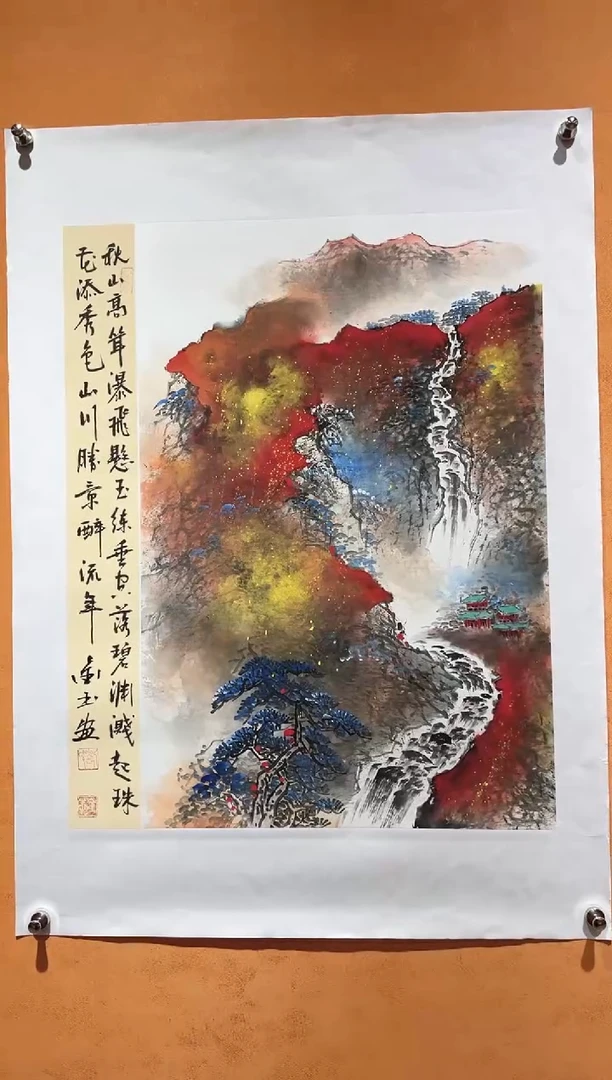 秋山高耸瀑飛懸玉练垂空落碧渊溅起珠
花添秀色山川勝景醉流年